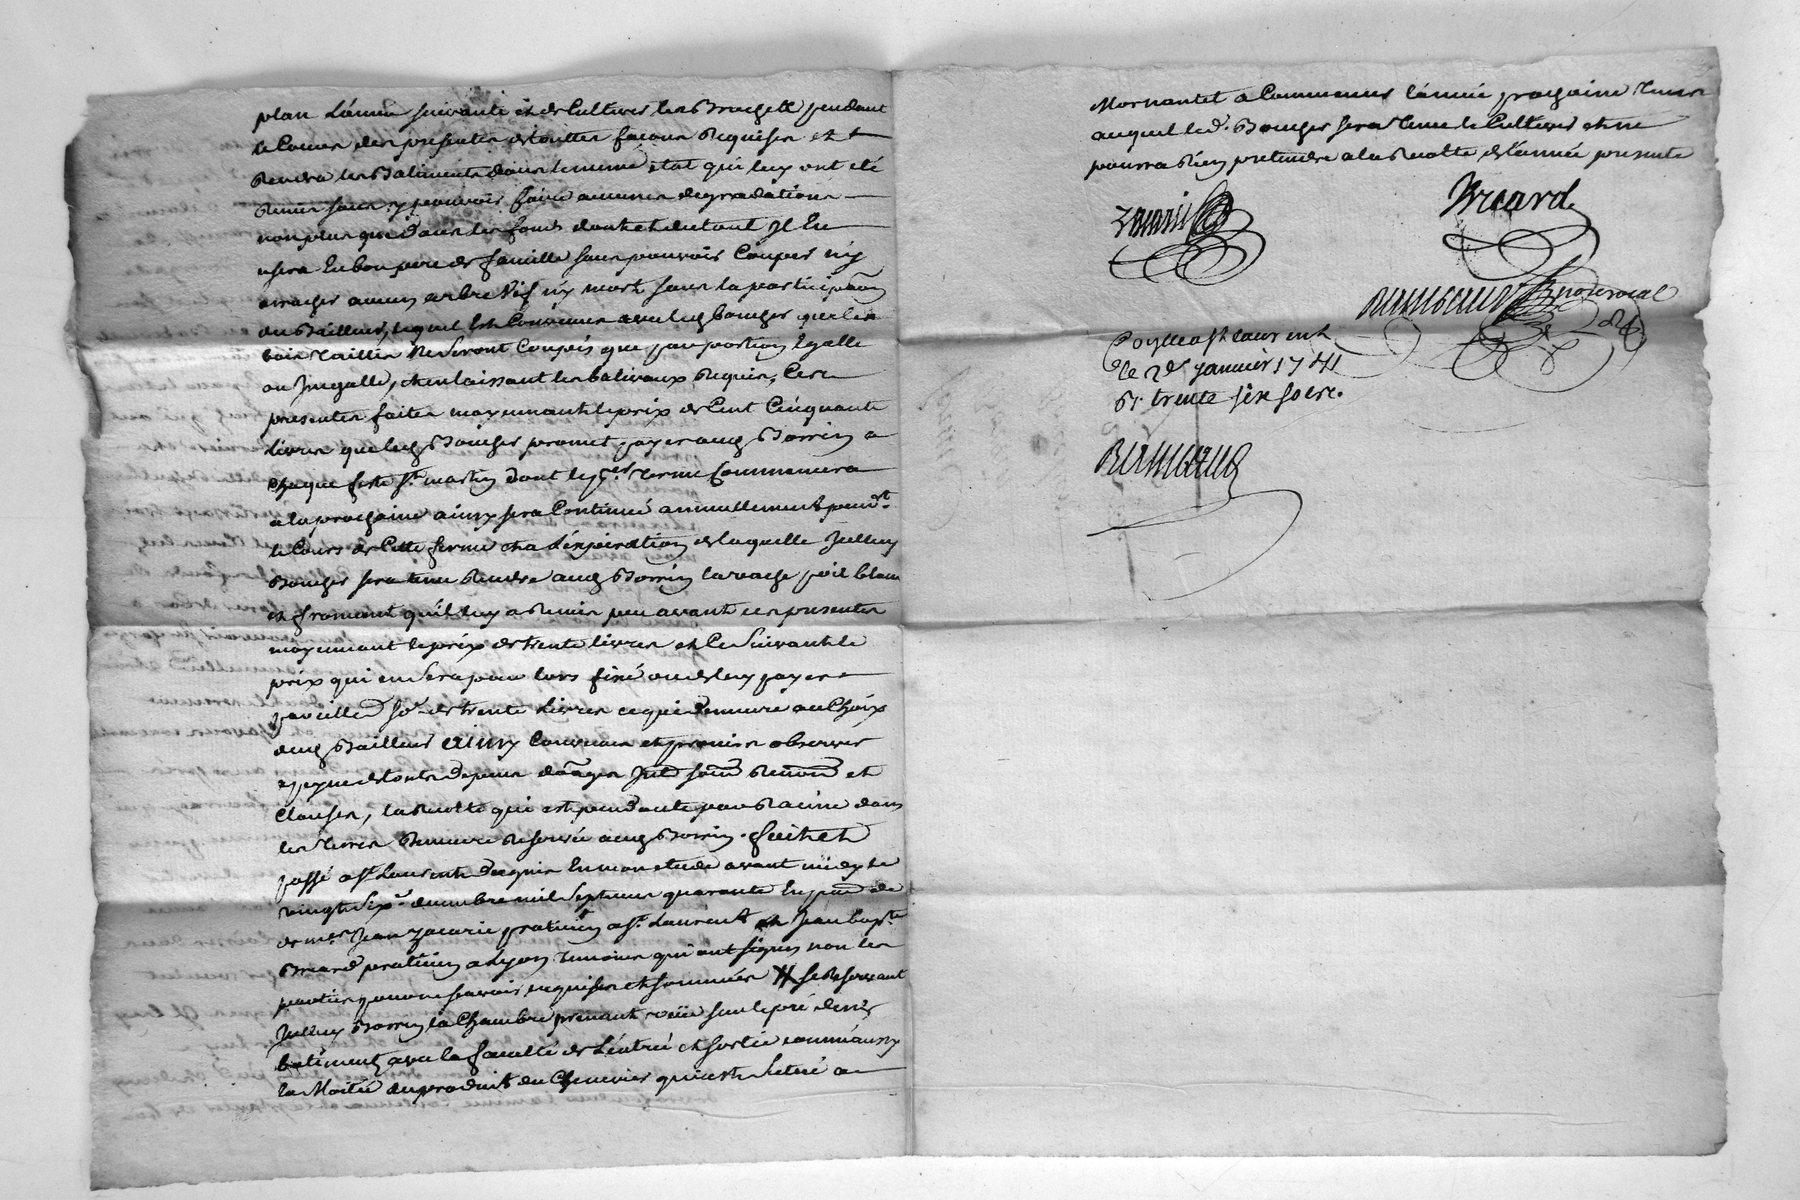 plan L'année suivante et de Cultiver les Bragell pendant
le Cours des presentes de touttes façons Requises et
Rendra les Batiments dans le meme état qui luy ont été
Remis sans y pouvoir faire aucunes degradations
non plus que dans les fonds dont et du tout Jl En
usera En bon pere de famille sans pouvoir Couper n'y
arracher aucun arbre Vif n'y mort sans la participaôn
du Bailleur, lequel Est Convenus avec led bouger que les
bois Taillis Ne seront Coupés que par portion Egalle
ou Jnegalle, et en laissant les balivaux Requis, Ces
presentes faites moyennant le prix de Cent Cinquante
Livres que led Bouger promet payer aud Borrin a
chaque feste St martin dont le per Terme Commencera
a la prochaine ainsy sera Continué annuellement pendt
le Cours de Cette ferme et a L'expiration de laquelle Jcelluy
Bouger sera tenu Rendre aud Borrin la vache poil blanc
et froment qu'il luy a Remis peu avant ces presentes
moyennant le prix de trente livres et Ce Suivant le
prix qui en Sera pour lors fixé ou de luy payer
pareille Se de trente Livres ce qui Demeure au Choix
dud Bailleur Ainsy Convenu et promis observer
a peyne de touts Depens doâges Jnt soum Renon et
Clauses, la Recolte qui est pendante par Racine dans
les Terres Demeure Reservée aud Borrin. fait et
passé a St Laurent Dagnin En mon etude avant midy le
vingt Six decembre mil Sept cens quarante En pnce de
de mes Jean zacarie praticien a St Laurent et Jean bapte
Briard praticien a Lyon Temoins qui ont signés non les
parties pour ne sçavoir, enquises et sommées # se Reservant
Jcelluy Borrin la Chambre prenant veüe sur le pré desd
batiments avec la faculté de L'éntrée et sortie comm' ainsy
la Moitié du produit du Chenevier qui est Scitué a
Mornantet a Commencer L'année prochaine Terres
auquel led. Bouger sera tenu le Cultiver et ne
pourra Rien pretendre a la Recolte de L'année presente
Zacarie
Briard
notе royal
Controllé a St Laurent
le 2e janvier 1741
R. trente six sols.